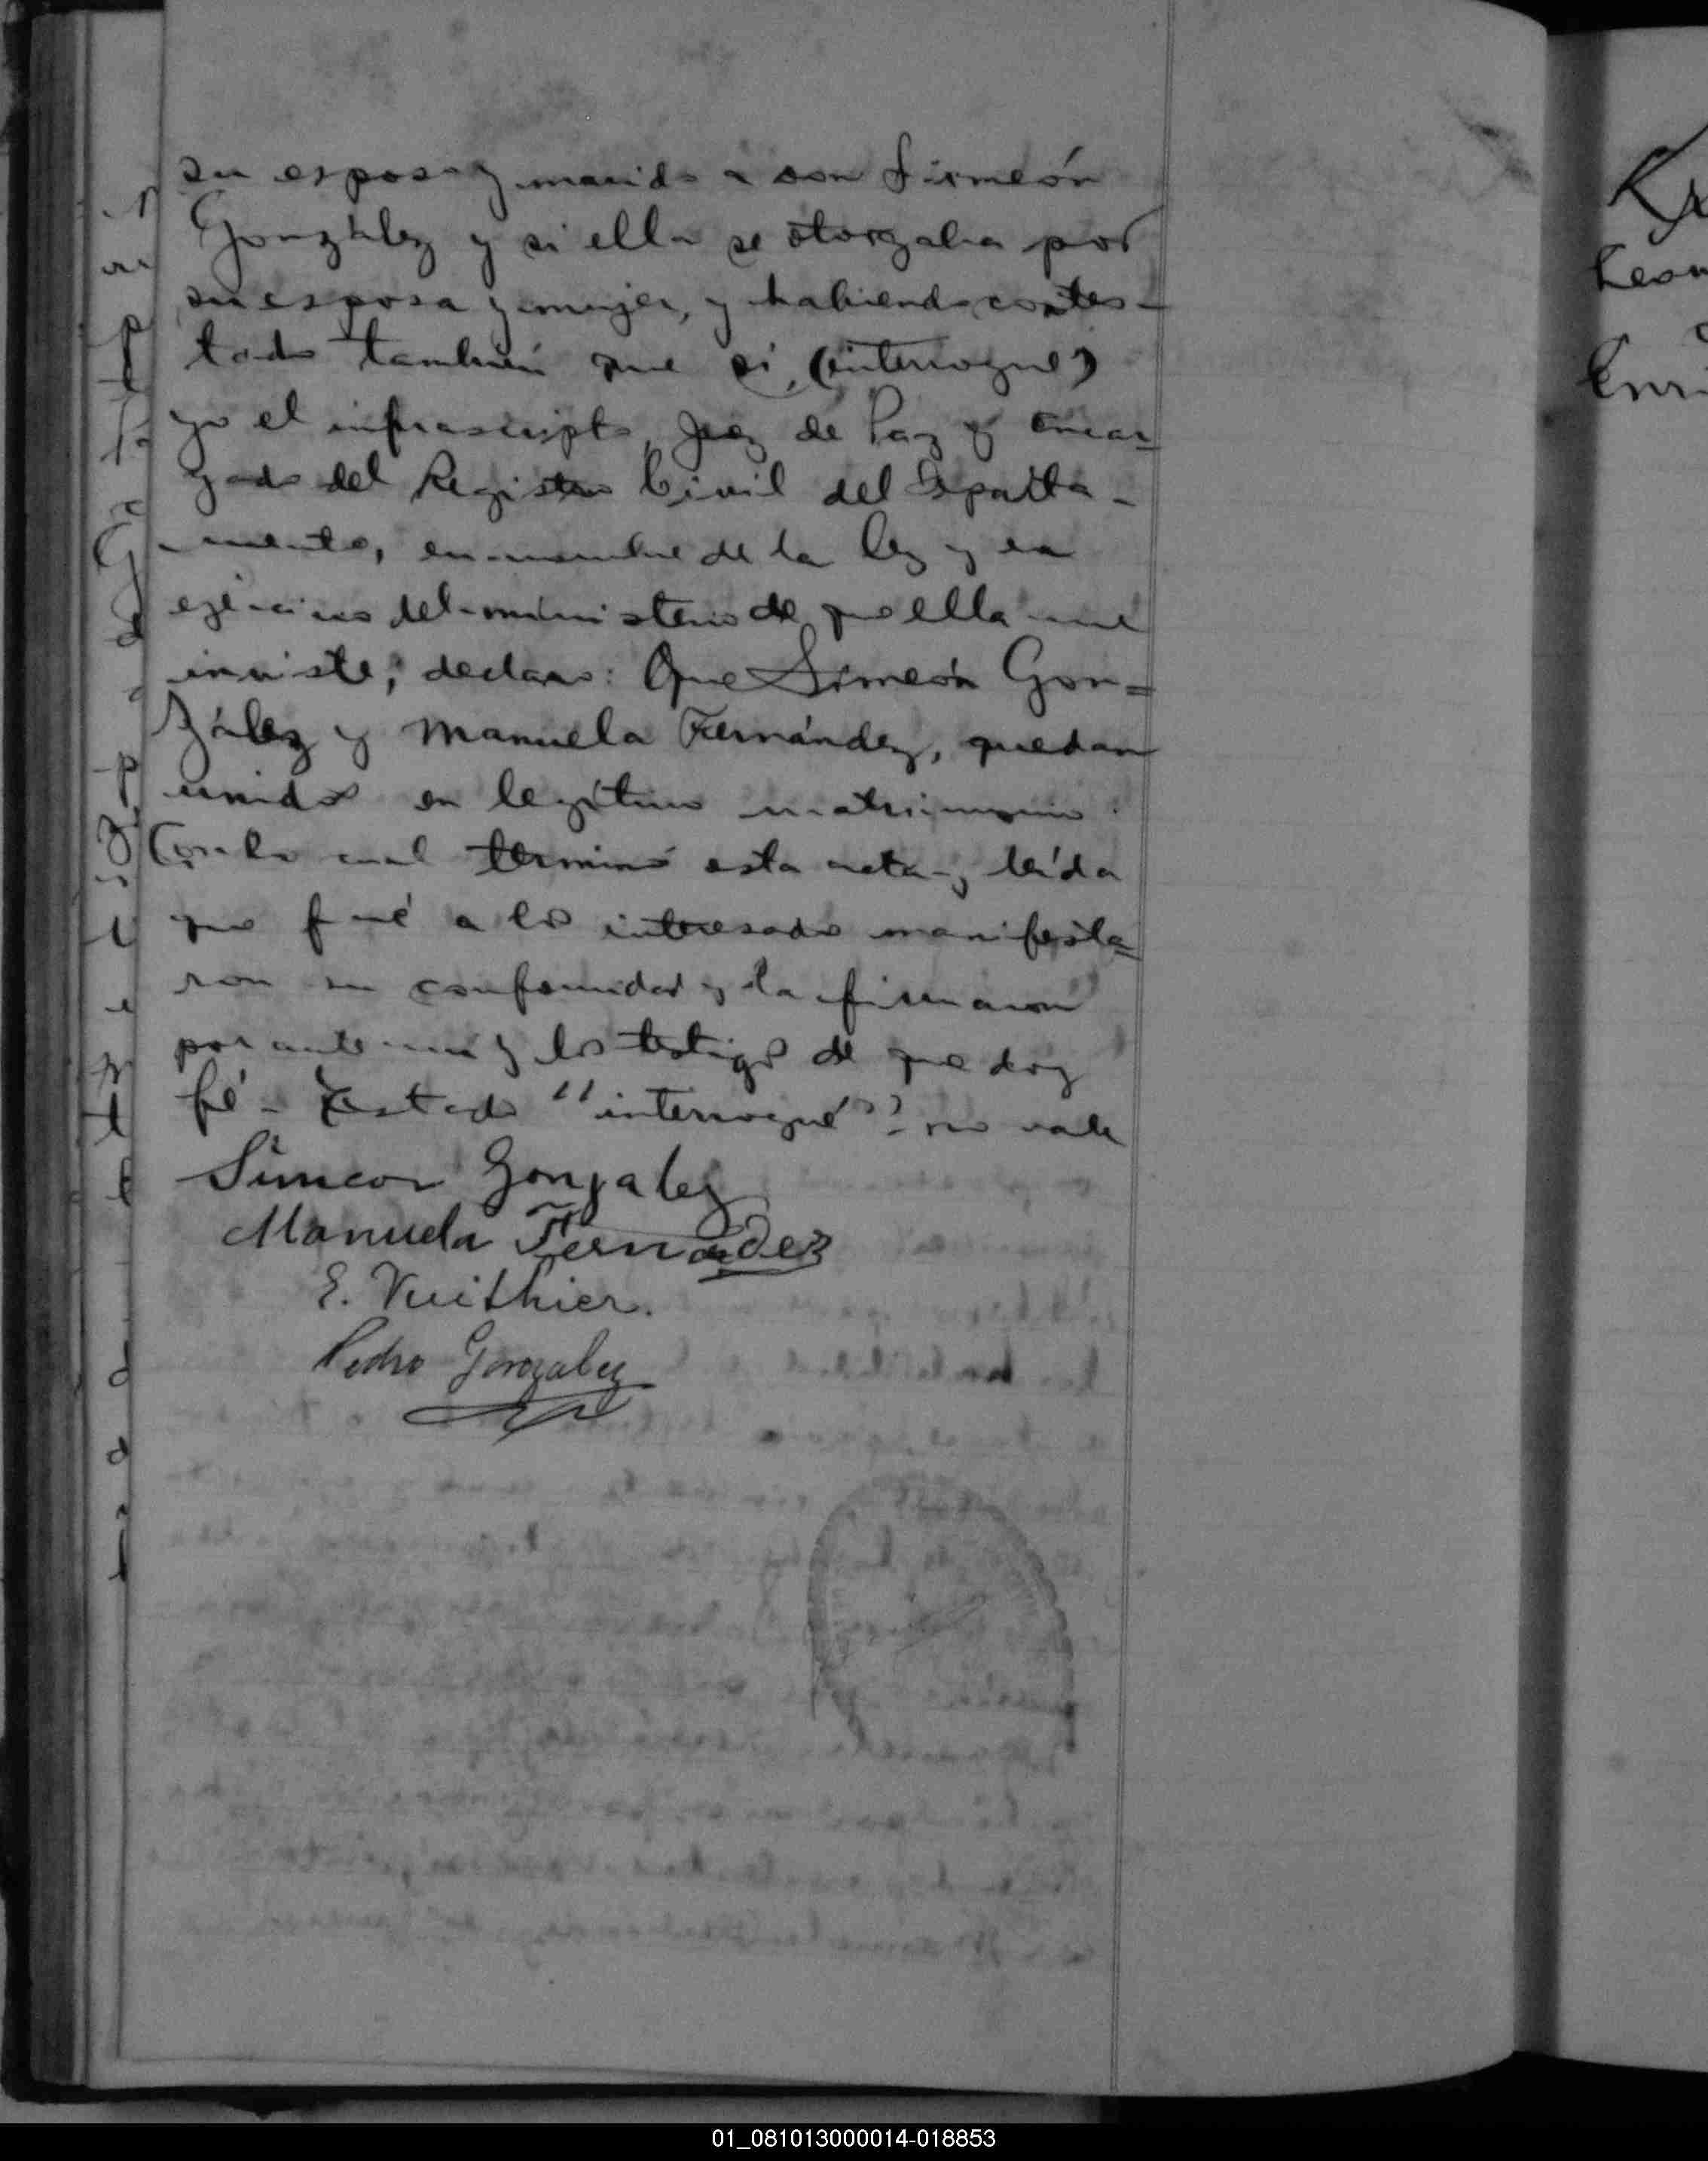 su esposo y marido a don Simeón
González y si ella se otorgaba por
su esposa y mujer, y habiendo contes-
tado también que sí, (interrogué)
yo el infrascripto, Juez de Paz y Encar-
gado del Registro Civil del Departa-
mento, en nombre de la ley y en
ejercicio del ministerio de que ella me
inviste, declaro: Que Simeón Gon=
zález y Manuela Fernández, quedan
unidos en legítimo matrimonio.
Con lo cual terminó esta acta, leída
que fué a los interesados manifesta=
ron su conformidad y la firmaron
por ante mí y los testigos de que doy
fé - Testado "interrogué": no vale
Simeon Gonzalez
Manuela Fernandez
E. Vuithier.
Pedro Gonzalez
01_081013000014-018853